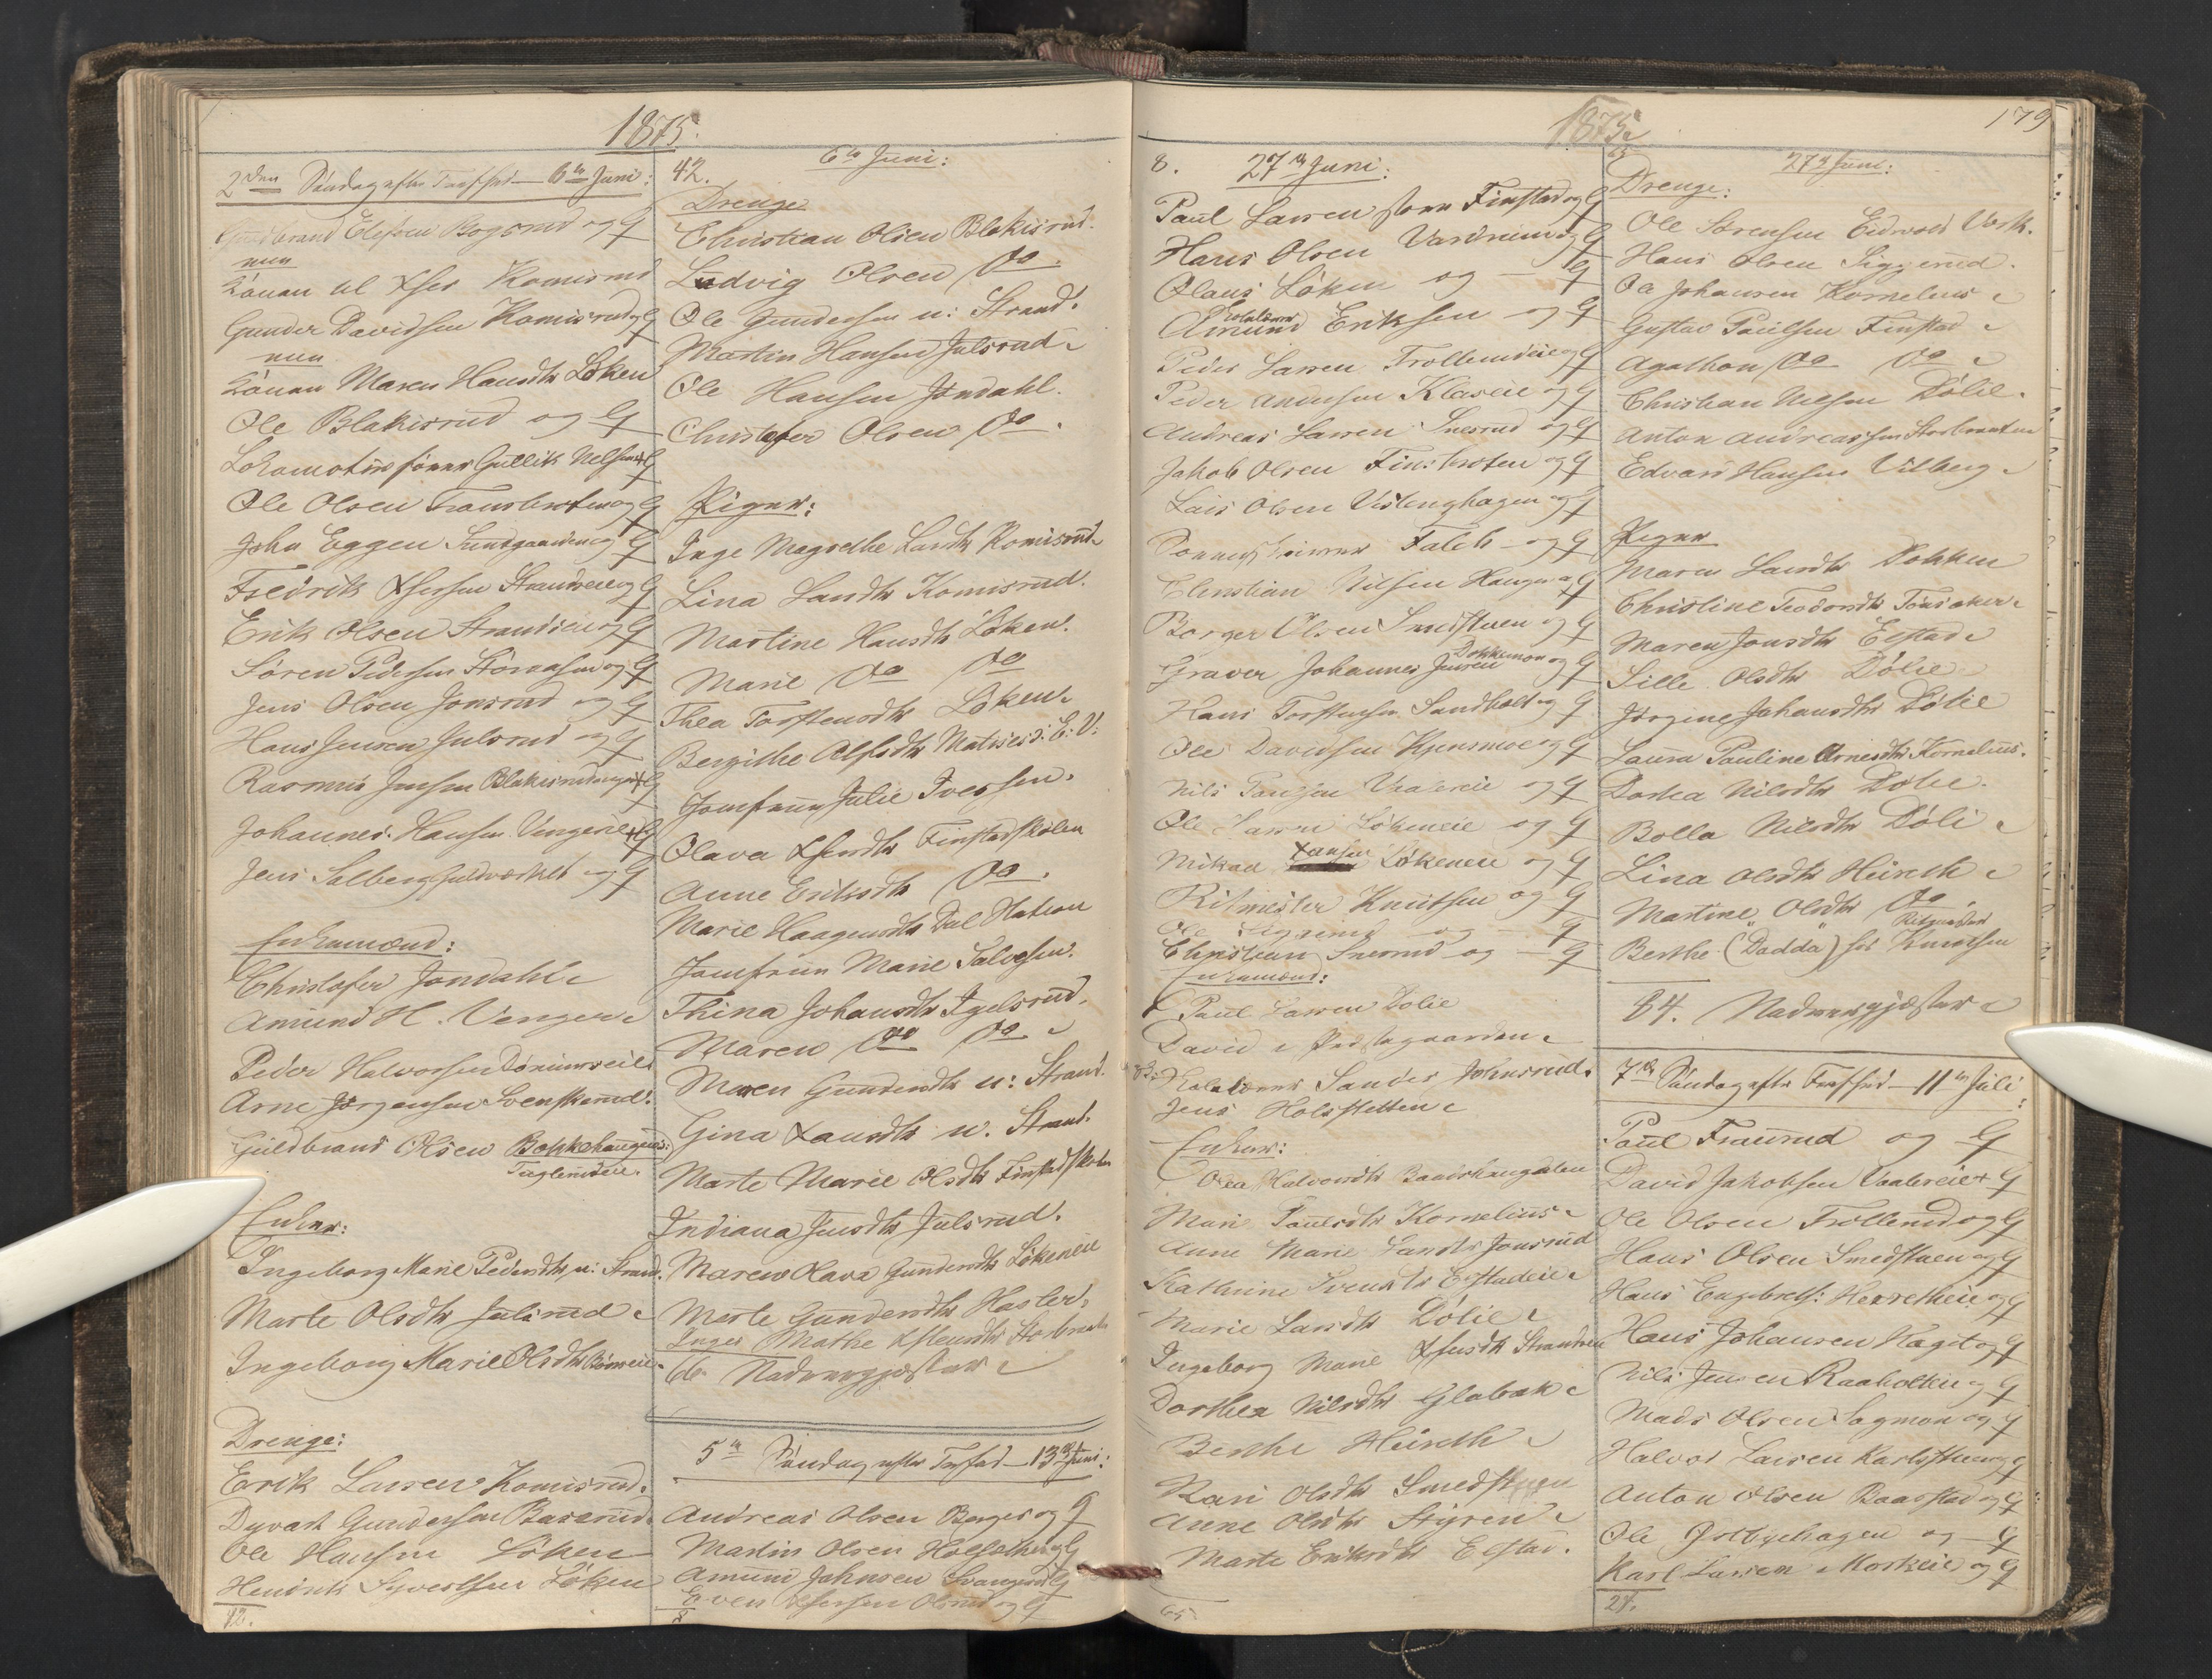 1875.
2den Søndag efter Trefhed — 6te Juni:
Guldbrand Elefsen Bogerud og G
nun
Konen til Komisrud
Gunder Davidsen Komisrud og G
nun
Konen Maren Hansdtr Løken
Ole Blakisrud og G
Lokomotivfører Gullik Nelsen + G
Ole Olsen Transbroten og G
John Eggen Sundgaarden og G
Fredrik Strandseie og G
Erik Olsen Strandseie og G
Søren Pedersen og G
Jens Olsen Jonsrud og G
Hans Jensen Julsrud og G
Rasmus Jensen Blakisrud + G
Johannes Hansen Vengerie + G
Jens Solberg Guldværket og G
Enkemænd:
Christofer Jondahl
Amund H. Venger
Peder Halvorsen Dønnumseie
Arne Jørgensen Svenskerud.
Guldbrand Olsen Bakkehaugen:
Teiglendeie.
Enker:
Ingeborg Marie Pedersdtr n: Strand.
Marte Olsdtr Julsrud
Ingeborg Marie Olsdtr
Drenge:
Erik Larsen Komisrud.
Dyvart Gundersen
Ole Hansen Løken
Hendrik Syvertsen Løken
42.
42.
6te Juni:
Drenge
Christian Olsen Blakisrud.
Ludvig Olsen Do.
Ole Gundersen n: Strand.
Martin Hansen Julsrud
Ole Hansen Jondahl.
Christofer Olsen Do.
Piger:
Inge Magrethe Larsdtr Komisrud
Lina Larsdtr Komisrud.
Martine Hansdtr Løken.
Marie Do Do
Thea Torstensdtr Løken
Bergithe Alfsdtr E: V:
Jomfruen Julie Iversen.
Olava Finstadskolen
Anne Eriksdtr Do.
Marie Haagensdtr Dal Station
Jomfruen Marie Salvesen.
Thina Johansdtr Igelsrud.
Maren Do Do
Maren Gundersdtr n: Strand.
Gina n. Strand.
Marte Marie Olsdtr Finstadskolen
Indiana Jensdtr Julsrud.
Maren Olava Gundersdtr Løkeneie
Marte Gundersdtr Hasler.
Inger Mathe
66. Nadvergjæster
5te Søndag efter Trefhed — 13de Juni:
Andreas Olsen Berger og G
Martin Olsen og G
Amund Johnsen og G
Even og G
8
1875.
179
8.
27de Juni:
Paul Larsen Finstad og G
Hans Olsen Vardreim og G
Olaus Løken og — G
Amund Eriksen og G
Peder Larsen Trollerudeie og G
Peder Andersen Klaseie og G
Andreas Larsen Snesrud og G
Jakob Olsen Finsbroten og G
Lars Olsen Veslenghagen og G
Falch — og G
Christian Nilsen Haugen og G
Borger Olsen Smedstuen og G
Dokkemoen
Graver Johannes Jensen og G
Hans Torstensen Sandholt og G
Ole Davidsen Kjensmoe og G
Nils Paulsen Vaalereie og G
Ole Larsen Løkeneie og G
Mikael Løkeneie og G
Ritmester Knutsen og G
Ole og — G
Christian Snesrud og — G
Enkemænd:
Paul Larsen Dølie
David i Prestegaarden
Sander Johnsrud.
Jens Holsstetten
Enker:
Olea Halvorsdtr
Mari Paulsdtr Kornelius
Anne Marie Larsdtr Jonsrud
Kathrine Svensdtr Elstadeie
Marie Larsdtr Dølie
Ingeborg Marie
Dorthea Nilsdtr Glabak
Berthe Hureth
Kari Olsdtr Smedstuen
Anne Olsdtr Styren
Marte Eriksdtr Elstad.
65
65
27de Juni:
Drenge:
Ole Sørensen Eidsvold Værk.
Hans Olsen Siggerud.
Ole Johansen Kornelius
Gustav Paulsen Finstad
Agathon Do Do
Christian Nilsen Dølie.
Anton Andreassen Storbraaten
Edvard Hansen Vilberg
Piger
Maren Larsdtr Dokken
Christine Teodorsdtr Tønsaker
Maren Jonsdtr Elstad
Sille Olsdtr Dølie
Jørgine Johansdtr Dølie
Laura Pauline Arnesdtr Kornelius.
Dorthea Nilsdtr Dølie.
Bolla Nilsdtr Døli
Lina Olsdtr Hureth
Martine Olsdtr Do.
Ritmester
Berthe ("Dadda") hos Knutsen
84. Nadvergjæster
7de Søndag efter Trefhed — 11te Juli:
Paul Traurud og G
David Jakobsen Vaalereie + G
Ole Olsen Trollerud og G
Hans Olsen Smedstuen og G
Hans Engebrets: og G
Hans Johansen Haget og G
Nils Jensen Raaholteie og G
Mads Olsen Sagmoen og G
Halvor Larsen Karlsstuen og G
Anton Olsen Baarstad og G
Ole Østbyehagen og G
Karl Larsen Morkeie og G
24.